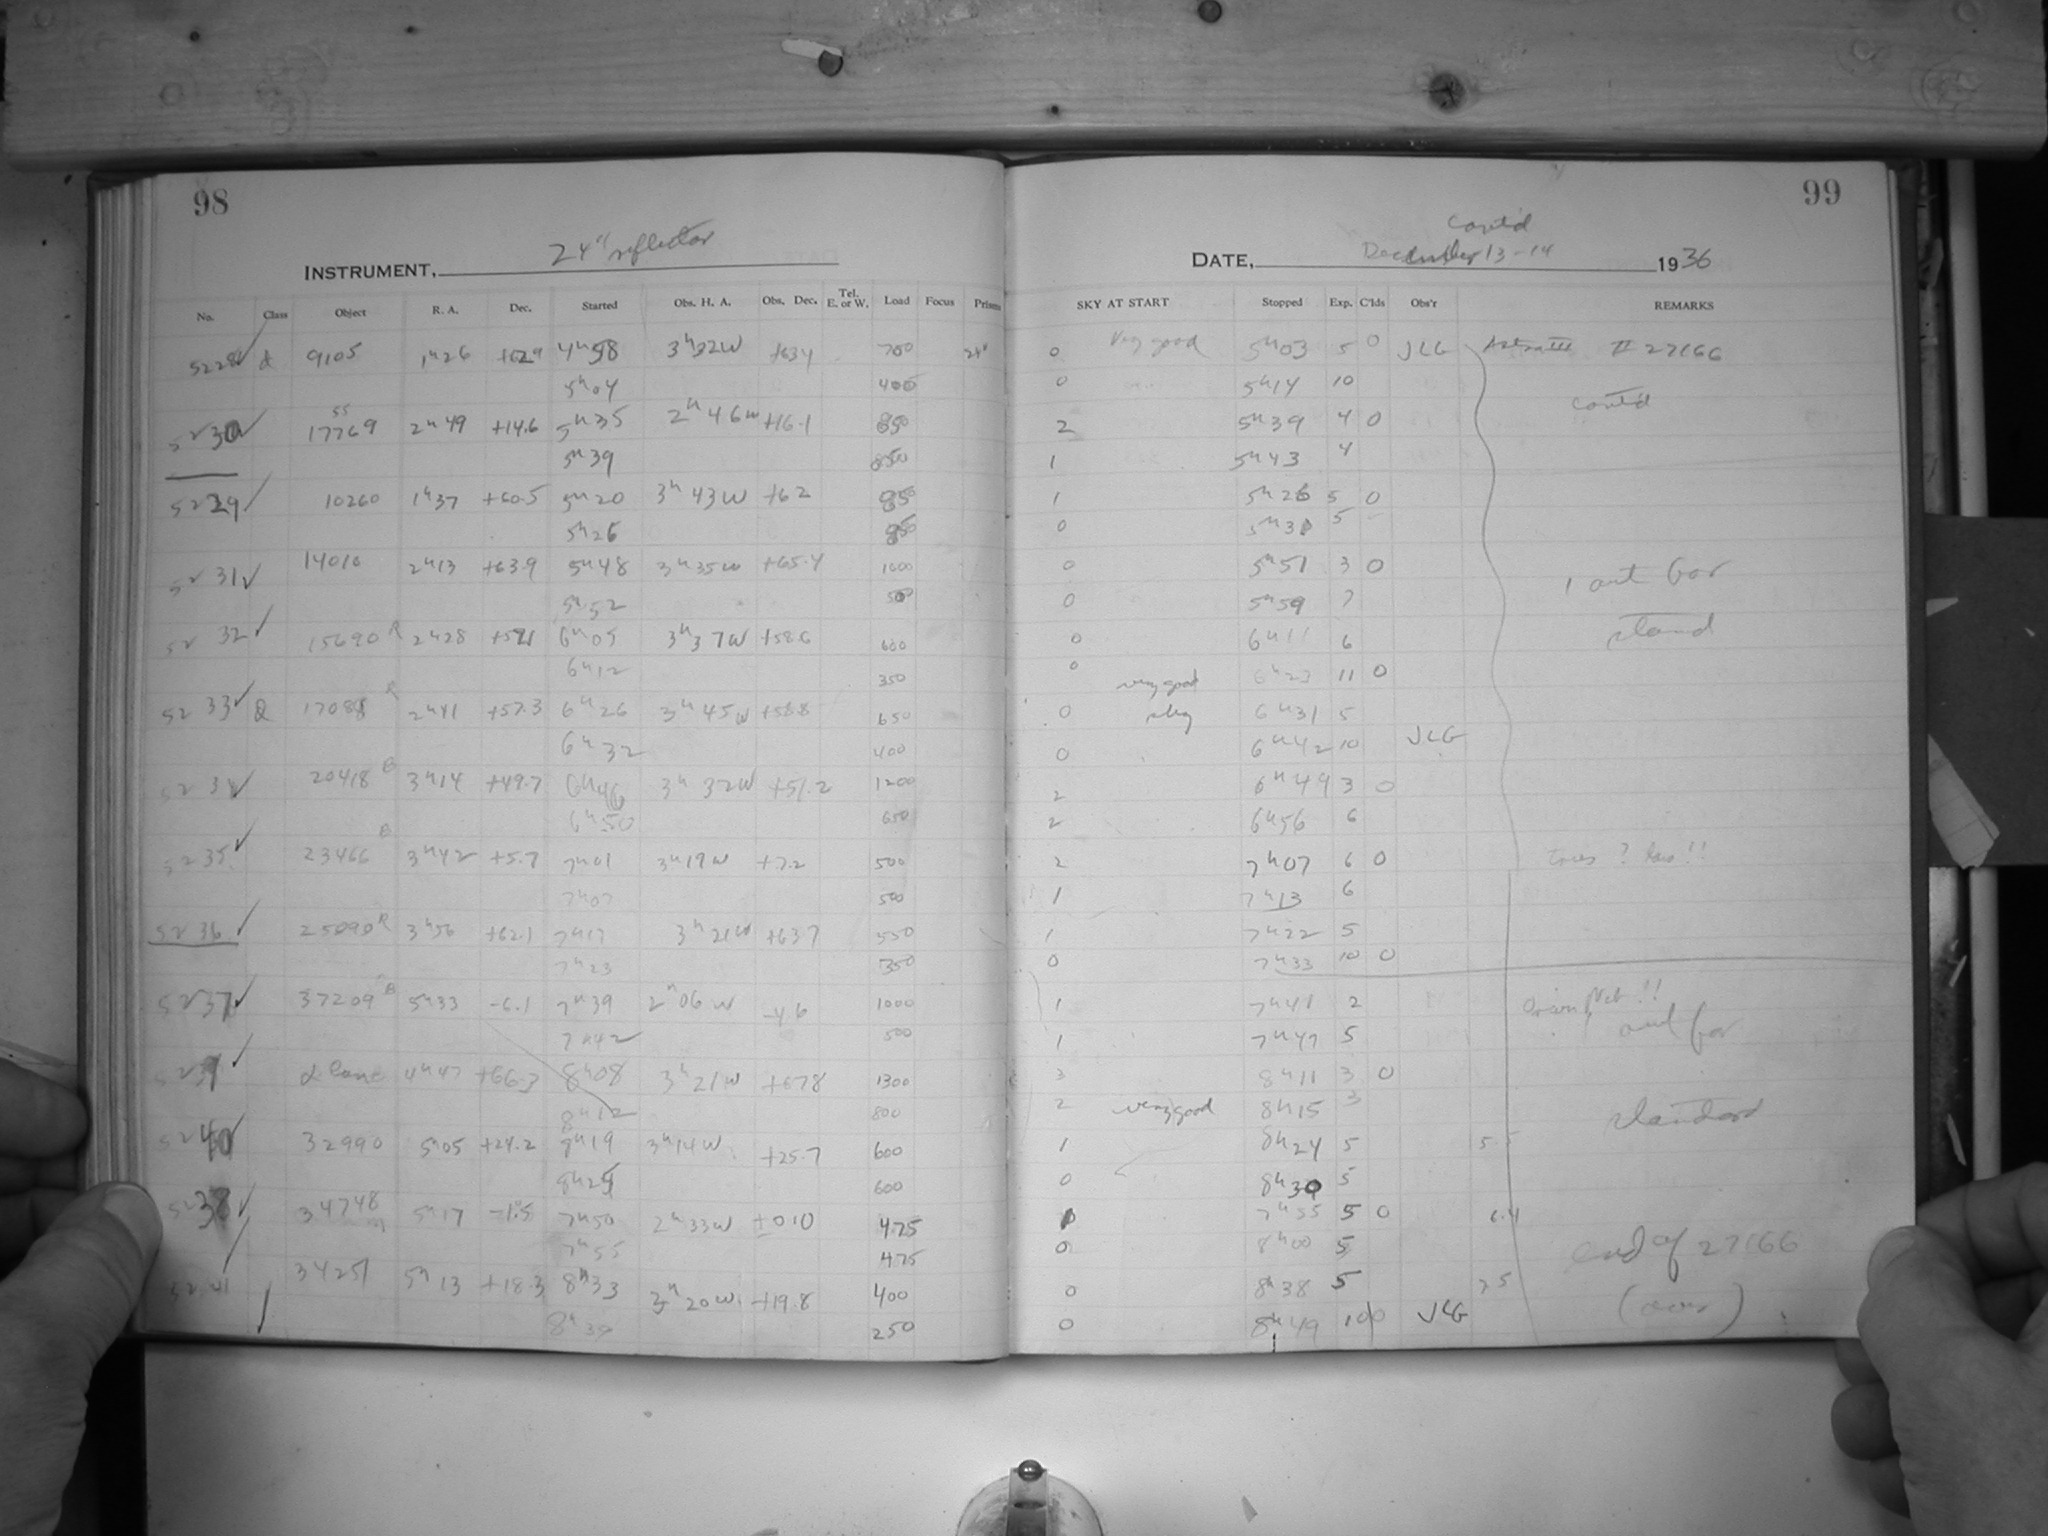 98
INSTRUMENT, 24" reflector
No. Class Object R. A. Dec. Started Obs. H. A. Obs. Dec. Tel. E. or W. Load Focus Prisms
5228 α 9105 1h26 +62.9 4h58 3h32W +634 700 24"
5h04 400
5230 17769 55 2h49 +14.6 5h35 2h46W +16.1 850
5h39 850
5229 10260 1h37 +60.5 5h20 3h43W +62 850
5h26 850
5231 14010 2h13 +63.9 5h48 3h35W +65.4 1000
5h52 500
5232 15690 R 2h28 +571 6h05 3h37W +58.6 600
6h12 350
5233 Q 17088 R 2h41 +57.3 6h26 3h45W +58.8 650
6h32 400
5234 20418 B 3h14 +49.7 6h46 3h32W +51.2 1200
6h50 650
5235 23466 B 3h42 +5.7 7h01 3h19W +7.2 500
7h07 500
5236 25090 R 3h56 +62.1 7h17 3h21W +637 550
7h23 350
5237 37209 B 5h33 -6.1 7h39 2h06W -4.6 1000
7h42 500
5239 α Cam 4h47 +66.3 8h08 3h21W +678 1300
8h12 800
5240 32990 5h05 +24.2 8h19 3h14W +25.7 600
8h25 600
5238 34748 5h17 -1.5 7h50 2h33W ±010 475
7h55 475
5241 34251 5h13 +18.3 8h33 3h20W +19.8 400
8h39 250
99
DATE, December 13-14 cont'd 1936
SKY AT START Stopped Exp. C'lds Obs'r REMARKS
0 Very good 5h03 5 0 JLG # 27166
0 5h14 10 cont'd
2 5h39 4 0
1 5h43 4
1 5h26 5 0
0 5h31 5
0 5h51 3 0 1 out for
0 5h59 7
0 6h11 6 stand
0 very good 6h23 11 0
0 sky 6h31 5
0 6h42 10 JLG
2 6h49 3 0
2 6h56 6
2 7h07 6 0
1 7h13 6
1 7h22 5
0 7h33 10 0
1 7h41 2 Orion Neb !!
1 7h47 5 out for
3 8h11 3 0
2 very good 8h15 3 standard
1 8h24 5 5.5
0 8h30 5
7h55 5 0 6.4
0 8h00 5 end of 27166
0 8h38 5 25
0 8h49 10 0 JLG (over)